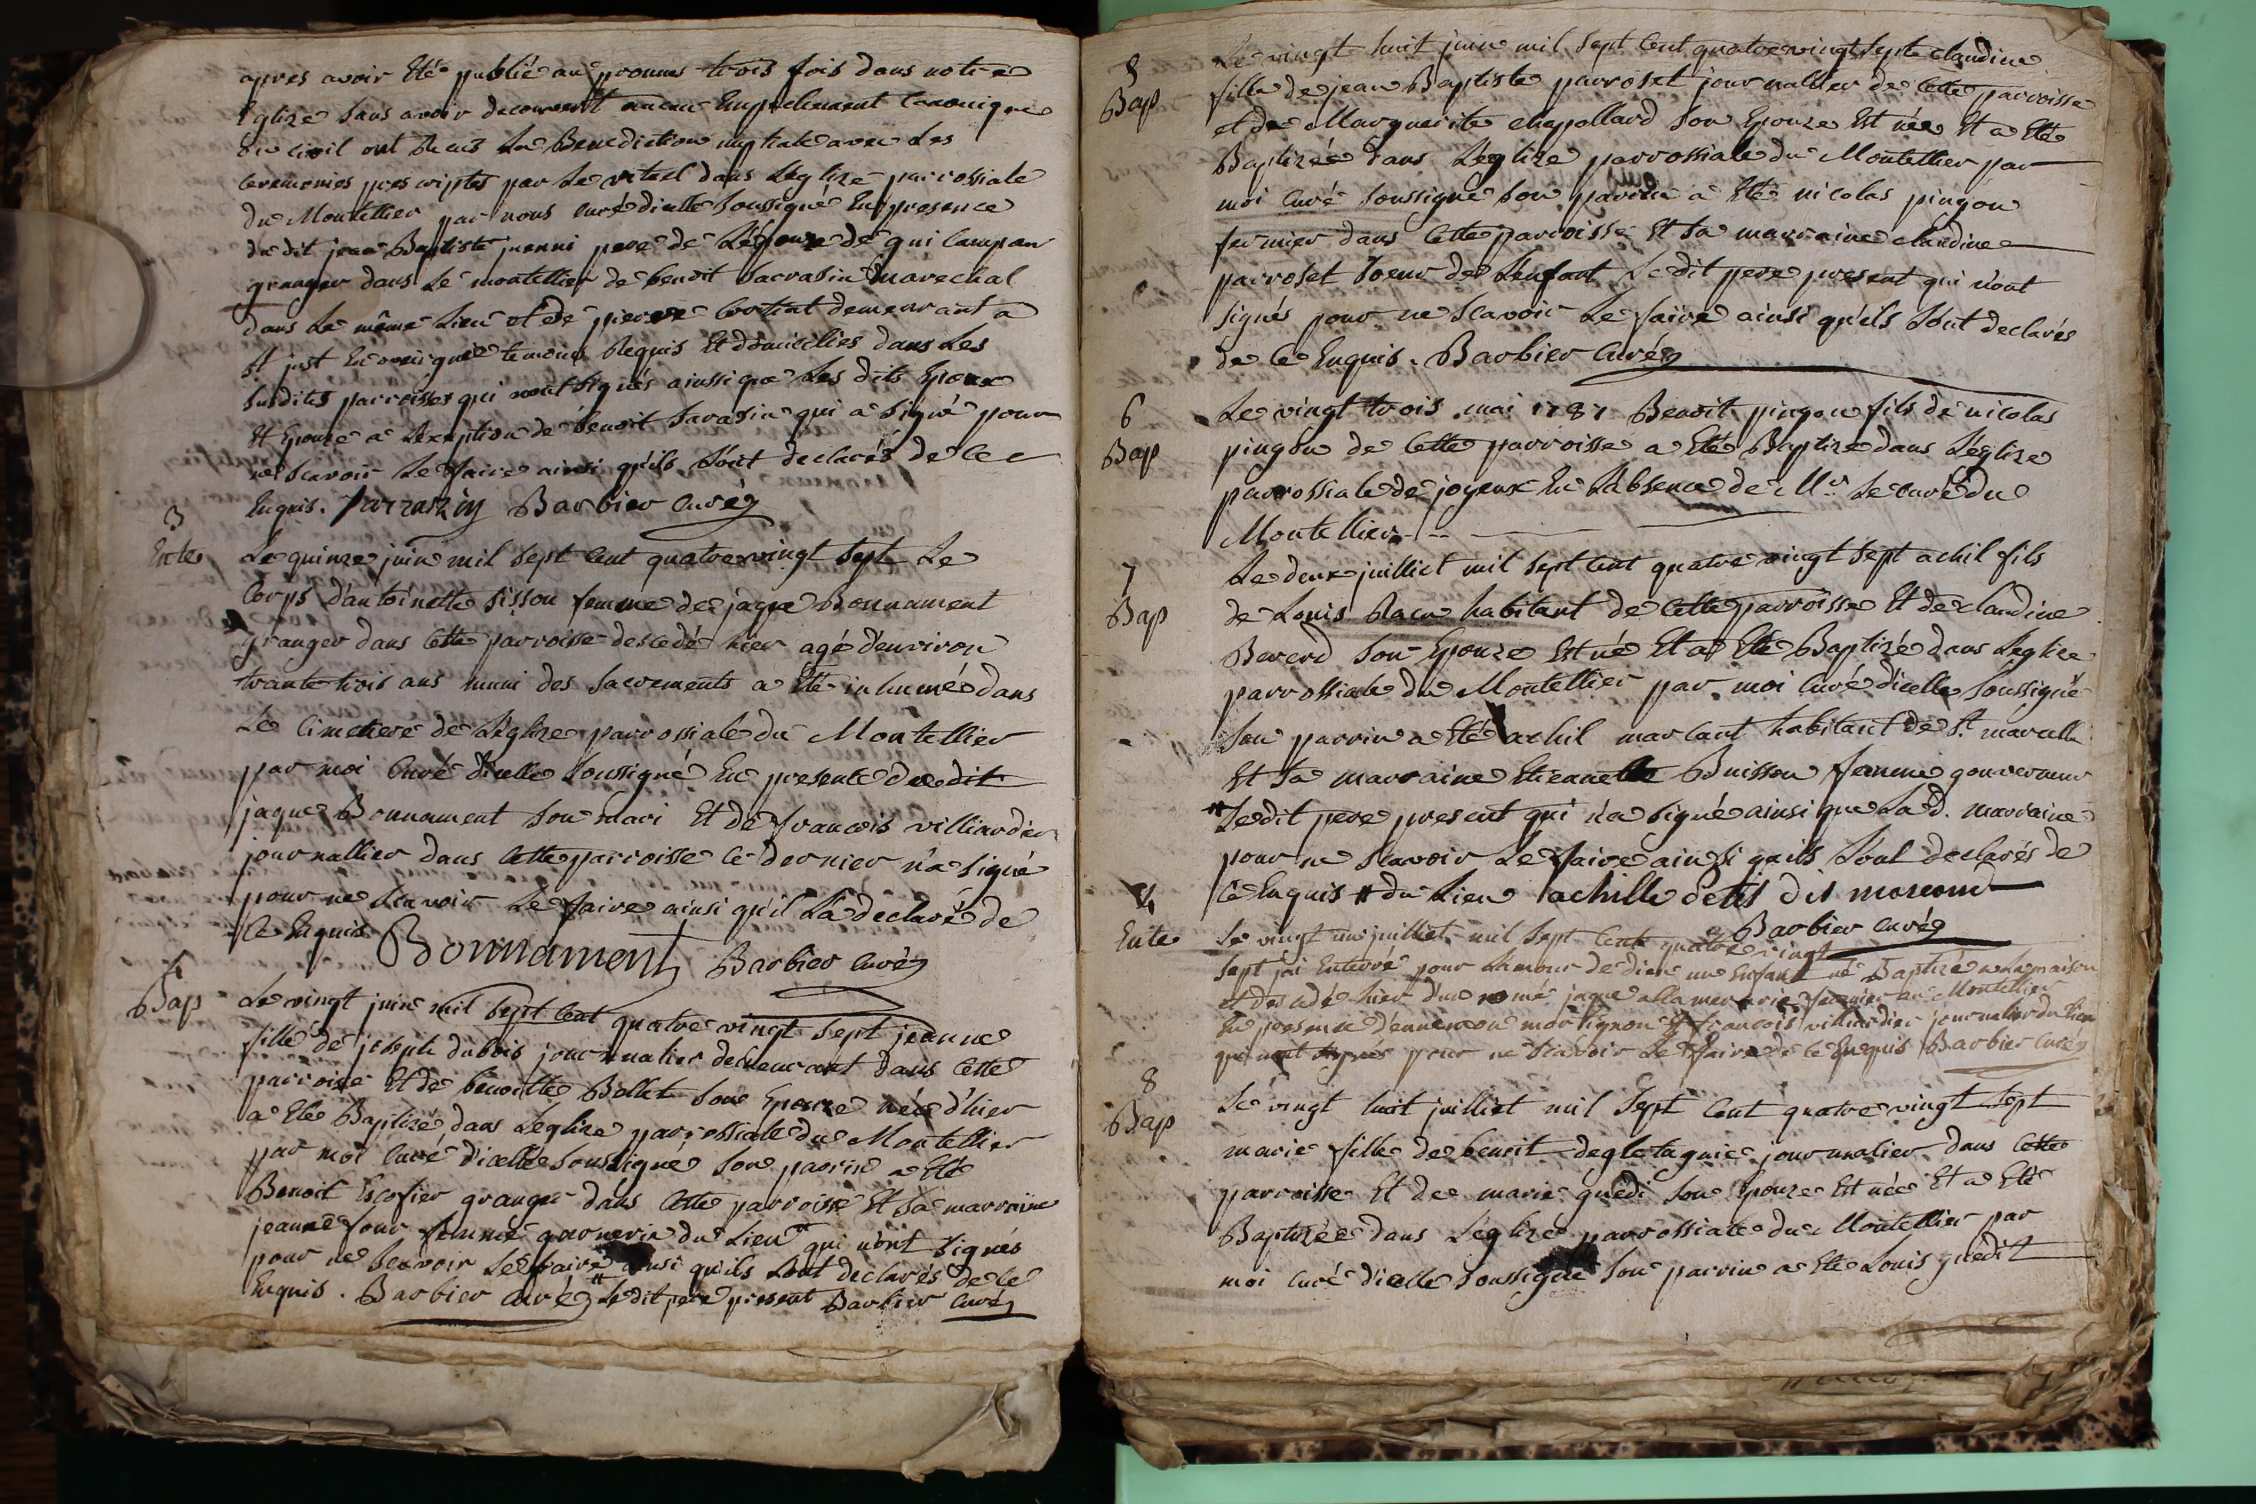 apres avoir Eté publié au pronnes trois fois dans notre
Eglize sans avoir decouvert aucun Empechement Canonique
ou civil ont Recus La Benediction nuptiale avec Les
Ceremonies prescriptes par Le rituel dans Leglize parrossiale
du Montellier par nous curé dicelle soussigné En presence
du dit jean Baptiste juenni pere de Lépouze de gui Campan
granger dans Le montellier de benoit sarrasin marechal
dans Le même Lieu et de pierre demeurant a
St just temoins Requis Et domicilies dans Les
susdites parroisses qui nont signés ainssi que Les dits Epoux
Et Epouze a Lexeption de benoit Sarasin qui a signé pour
ne scavoir Le faire ainsi qu'ils sont declarés de ce
Enquis. Sarrazin Barbier curé
3
Ente
Le quinze juin mil sept cent quatre vingt sept Le
Corps d'antoinette sisson femme de jaque Bonnament
granger dans cette parroisse descedé hier agé d'environ
trante trois ans muni des sacrements a Eté inhumée dans
Le Cimetiere de Leglize parrossiale du Montellier
par moi Curé dicelle soussigné En presence du dit
jaque Bonnament son Mari Et de francois villiardier
journallier dans cette parroisse ce dernier n'a signé
pour ne scavoir Le faire ainsi qu'il La declaré de
ce Enquis Bonnament Barbier curé
4
Bap
Le vingt juin mil sept cent quatre vingt sept jeanne
fille de joseph dubois journalier demeurant dans cette
parroise Et de benoitte Bollet son Epouze née d'hier
a Eté Baptizé dans Leglize parrossiale du Montellier
par moi Curé dicelle soussigné son parrin a Eté
Benoit Escofier granger dans cette parroisse Et sa marraine
jeanne four femme garnerin du Lieu # qui n'ont signés
pour ne scavoir Le faire ainsi qu'ils sont declarés de ce
Enquis. Barbier curé # Le dit pere present Barbier curé
5
Bap
Le vingt huit juin mil sept cent quatre vingt sept claudine
fille de jean Baptiste parroset journallier de cette parroisse
et de Marguerite chapollard son Epouze Est née Et a Eté
Baptizée dans Leglize parrossiale du Montellier par
moi curé soussigné son parrin a Eté nicolas pingon
fermier dans cette parroisse Et sa marraine claudine
parroset soeur de Lenfant Le dit pere present qui n'ont
signés pour ne scavoir Le faire ainsi qu'ils sont declarés
de ce Enquis. Barbier curé
6
Bap
Le vingt trois mai 1787 Benoit pingon fils de nicolas
pingon de cette parroisse a Eté Baptizé dans Léglize
parrossiale de joyeux En L'absence de Mr Le curé du
Montellier
7
Bap
Le deux juilliet mil sept cent quatre vingt sept achil fils
de Louis Racu habitant de cette parroisse Et de claudine
Beverd son Epouze Est né Et a Eté Baptizé dans Leglize
parrossiale du Montellier par moi curé dicelle soussigné
son parrin a Eté achil marcant habitant de St marcelle
Et sa marraine Etiennette Buisson femme gouverneur
# Le dit pere present qui n'a signé ainsi que La d. marraine
pour ne scavoir Le faire ainsi qu'ils sont declarés de
ce Enquis # du Lieu achille detis dit morcond
Barbier curé
4
Ente
Le vingt un juilliet mil sept cent quatre vingt
sept j'ai Enterré pour Lamour de dieu un Enfant né Baptizé a La maison
et descedé hier d'un nomé jaque fermier au Montellier
En presence d'ennemon morlignon Et francois villiardier journalier du Lieu
qui n'ont signés pour ne scavoir Le faire de ce Enquis Barbier curé
8
Bap
Le vingt huit juilliet mil sept cent quatre vingt sept
marie fille de benoit degletagnie journnalier dans cette
parroisse Et de marie guédi son Epouze Est née Et a Eté
Baptizée dans Léglize parrossiale du Montellier par
moi curé dicelle soussigné son parrin a Eté Louis guedit